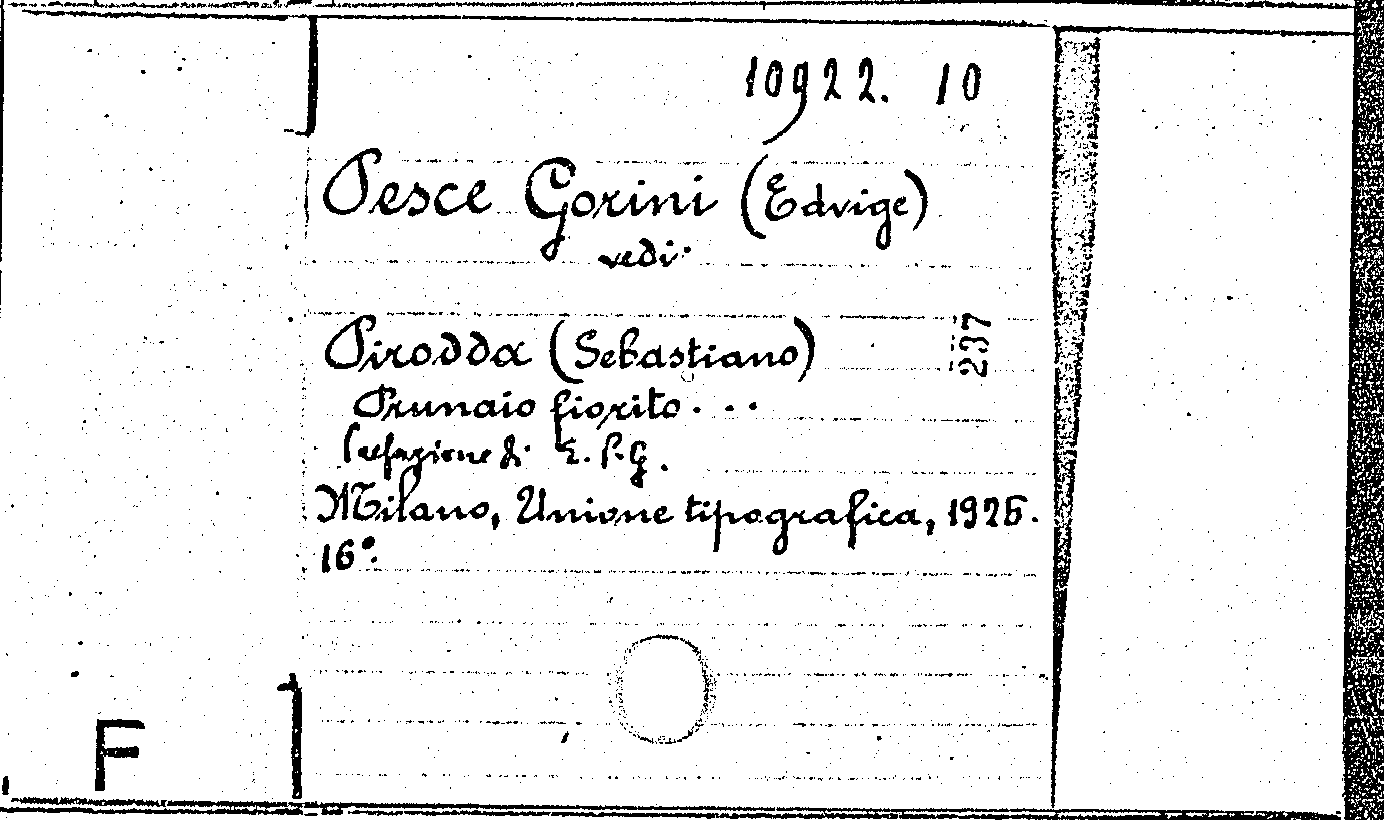 10922. 10
Pesce Gorini (Edvige)
vedi
Pirodda (Sebastiano)
237
Prunaio fiorito...
Prefazione di E. P. G.
Milano, Unione tipografica, 1926.
16°.
F